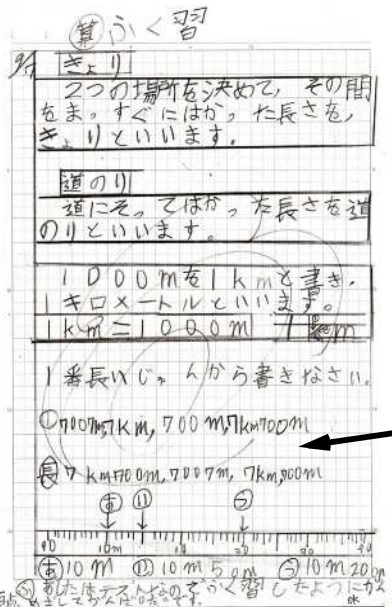 算 ふく習
9/17 きょり
2つの場所を決めて，その間
をまっすぐにはかった長さを，
きょりといいます。
道のり
道にそってはかった長さを道
のりといいます。
1000mを1kmと書き，
1キロメートルといいます。
1km=1000m 1km
1番長いじゅんから書きなさい。
7007m, 7km, 700m, 7km700m
長 7km700m, 7007m, 7km, 700m
あ い う
0 10m 20 30
あ 10m い 10m 5 う 10m 20
あしたはテストなので ふく習したように